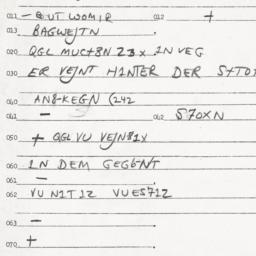 011 — BUT WOMIR 012 +
013 BAGWEJTN
020 QGL MUCT8N 23x IN VEG
030 ER VEJNT HINTER DER STO
040 AN8-KEGN (242
041 — 042 S70XN
050 + QGL VU VEJN81X
060 IN DEM GEGENT
061 —
062 VU N1T1Z VUES71Z
063 —
070 +